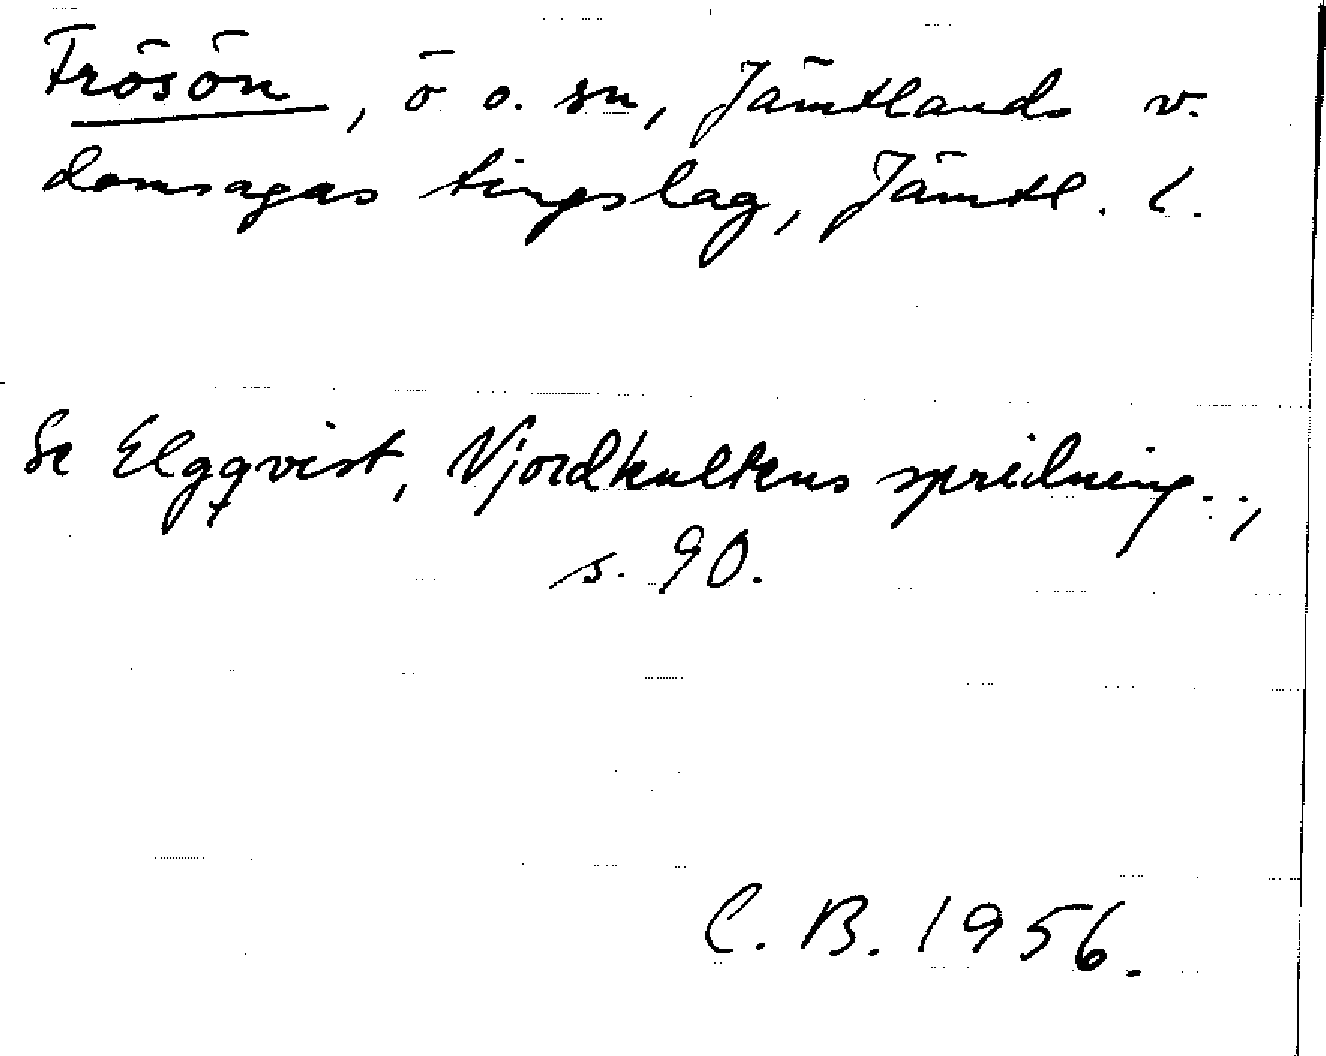 Frösön, ö o. sn, Jämtlands v.
domsagas tingslag, Jämtl. l.
Se Elgqvist, Njordkultens spridning..,
s. 90.
C. B. 1956.